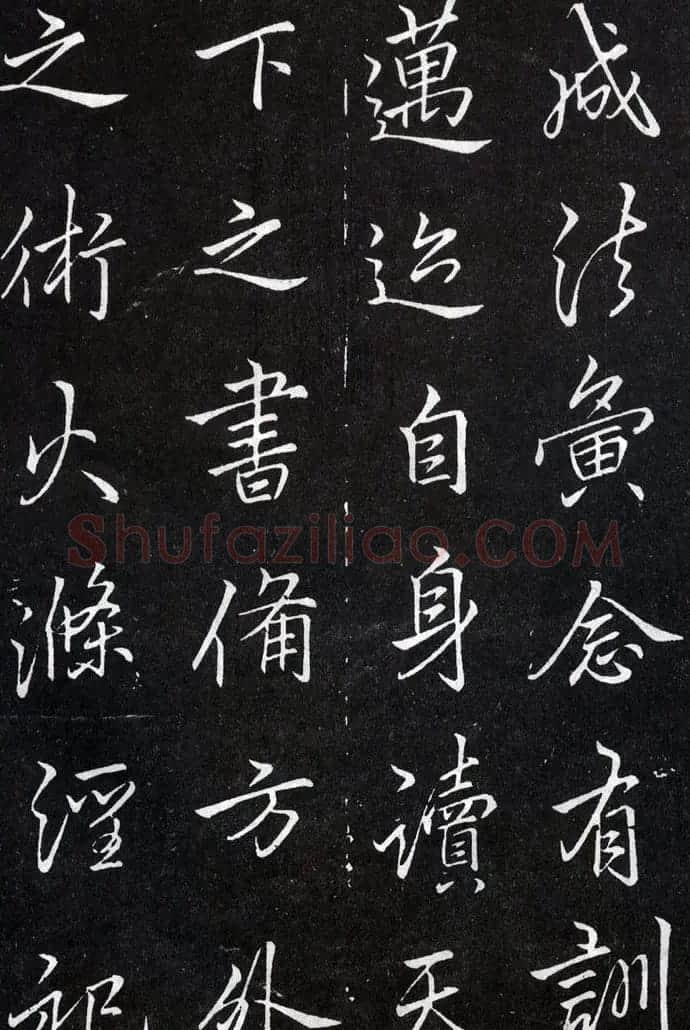 法夤念有訓
邁迨自身讀天
下之書備方外
之術火滌涇
Shufaziliao.COM